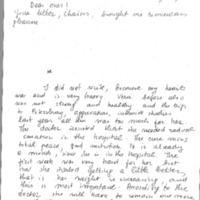 Dear ones!
Your letter, Chaim, brought me
pleasure
I did not write, because my hearts
was and is very heavy. Vera before also
was not strong and healthy and the trip
to Petersburg, apparation,
last year all was too much for her.
The doctor insisted that she needed radical
in the hospital. The cure needs
total peace and It is already
6 month, since she is in the hospital. The
first week was very hard for her, but
now she started getting a little better,
that is her weight is increasing and
this is most important. According to the
doctor, she will have to remain one more